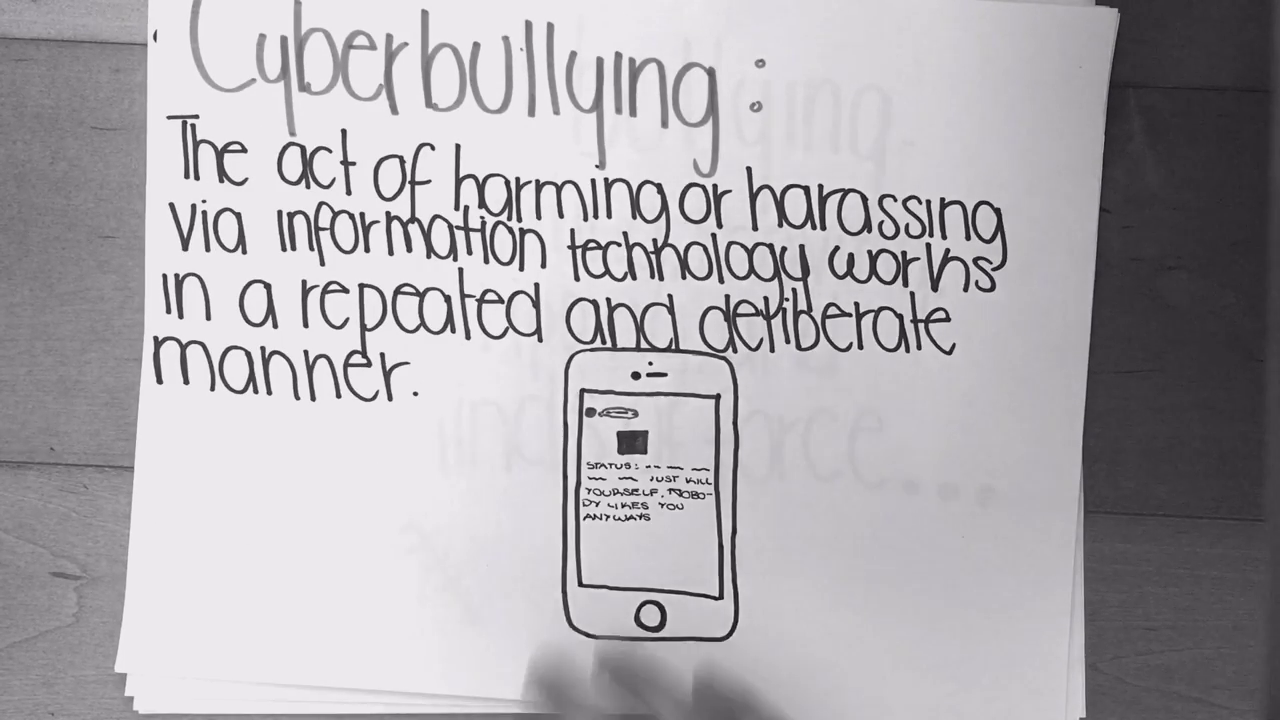 Cyberbullying:
The act of harming or harassing
via information technology works
in a repeated and deliberate
manner.
STATUS:
JUST KILL
YOURSELF, NOBO-
DY LIKES YOU
ANYWAYS